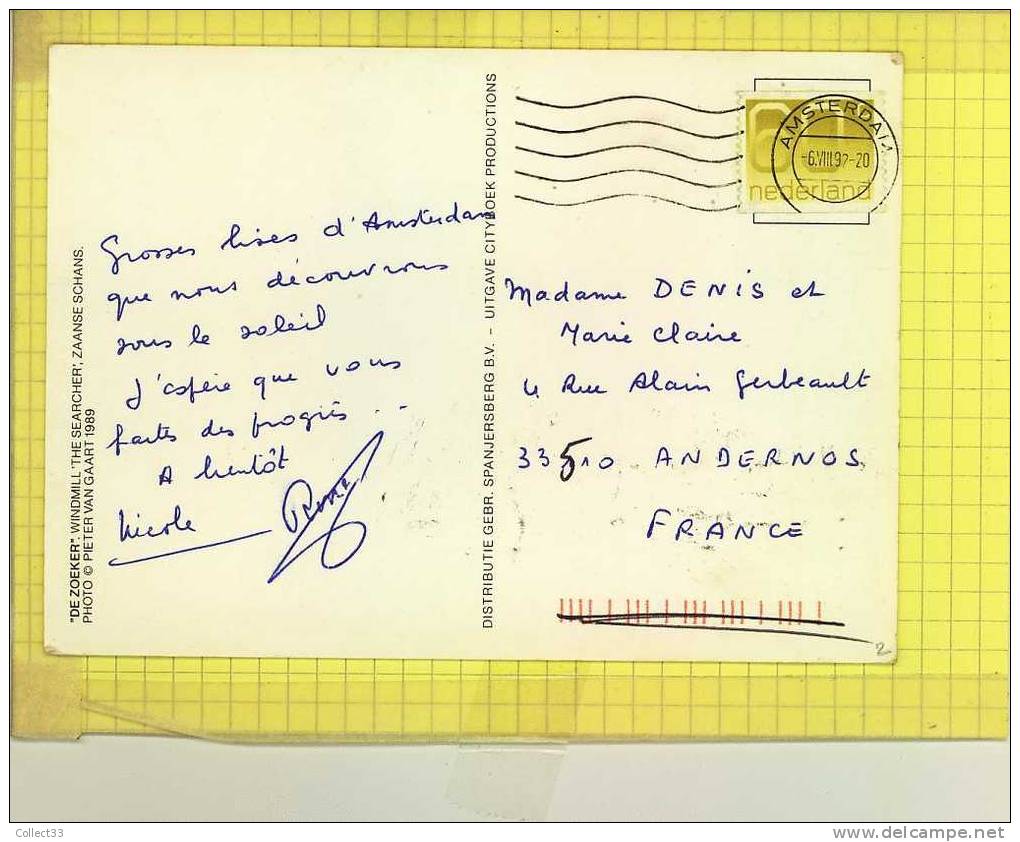 "DE ZOEKER". WINDMILL 'THE SEARCHER', ZAANSE SCHANS.
PHOTO © PIETER VAN GAART 1989
Grosses bises d'Amsterdam
que nous découvrons
sous le soleil
J'espère que vous
faites des progrès...
A bientôt
Nicole
DISTRIBUTIE GEBR. SPANJERSBERG B.V. – UITGAVE CITYBOEK PRODUCTIONS
AMSTERDAM
-6.VIII.92-20
nederland
Madame DENIS et
Marie Claire
4 Rue Alain Gerbeault
33510 ANDERNOS
FRANCE
2
Collect33
www.delcampe.net